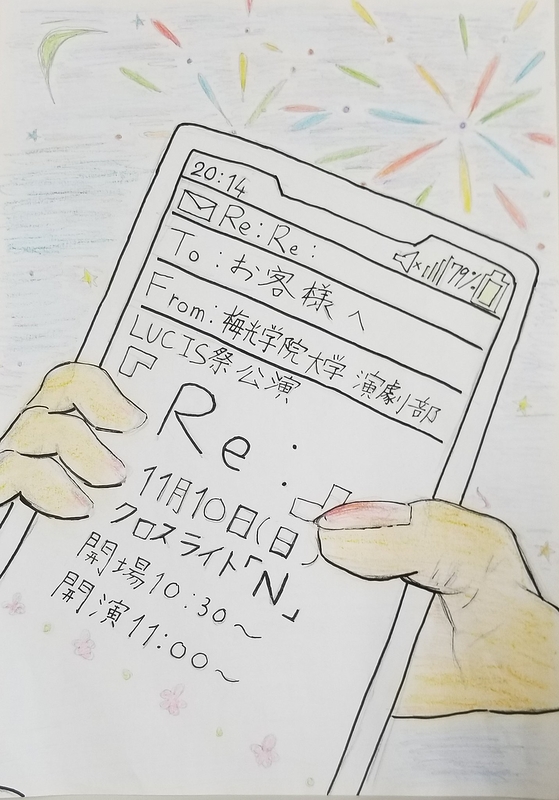 20:14
79%
Re:Re:
To:お客様へ
From:梅光学院大学 演劇部
LUCIS祭公演
『Re:』
11月10日(日)
クロスライト「N」
開場10:30~
開演11:00~